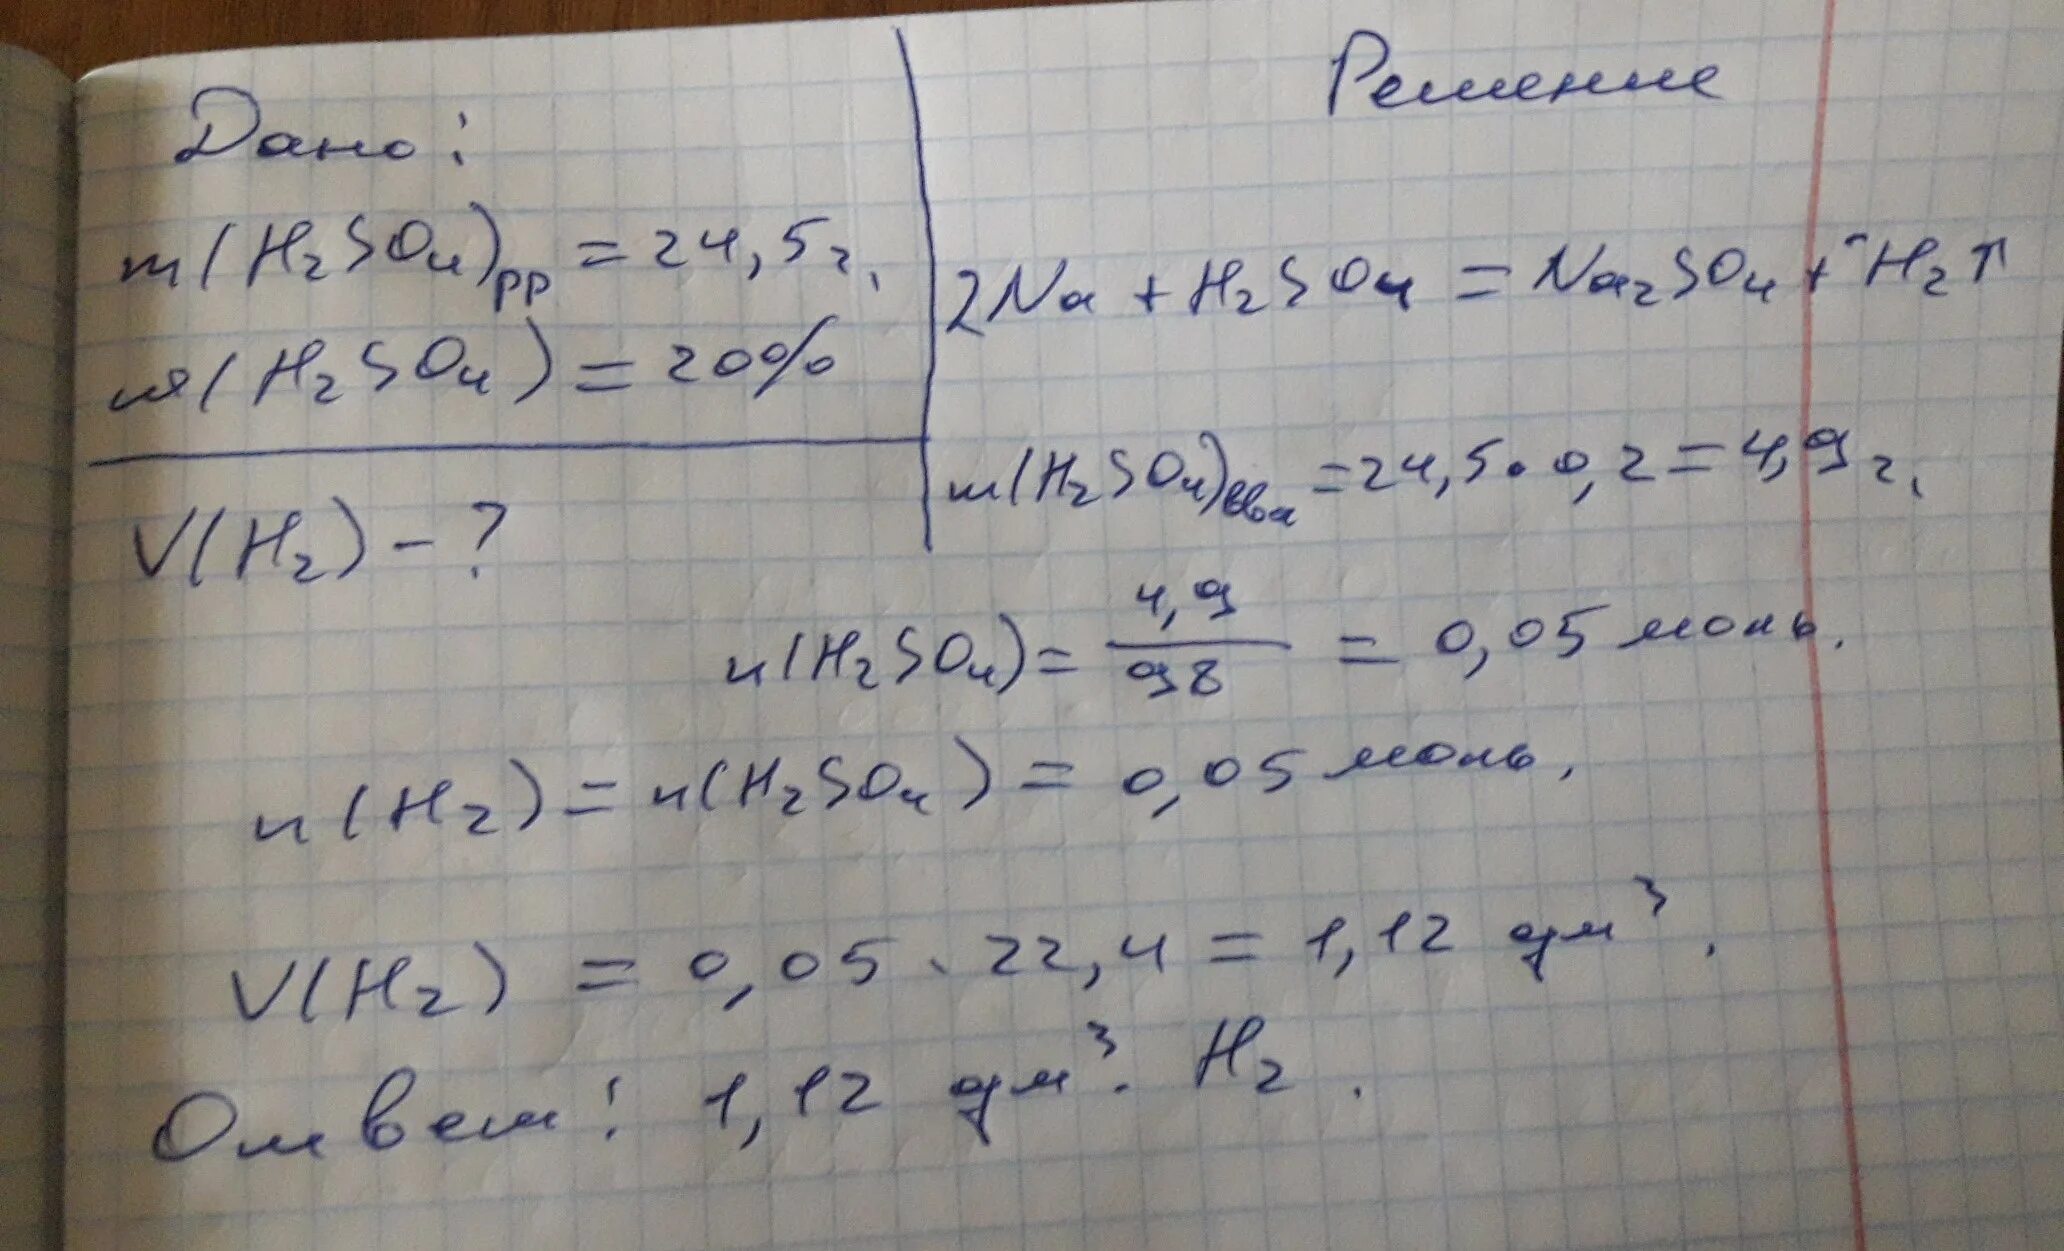 Дано:
m(H₂SO₄)рр = 24,5 г.
ω(H₂SO₄) = 20%
V(H₂) - ?
Решение
2Na + H₂SO₄ = Na₂SO₄ + H₂↑
m(H₂SO₄)вва = 24,5 · 0,2 = 4,9 г.
n(H₂SO₄) = 4,9/98 = 0,05 моль.
n(H₂) = n(H₂SO₄) = 0,05 моль.
V(H₂) = 0,05 · 22,4 = 1,12 дм³.
Ответ: 1,12 дм³. H₂.